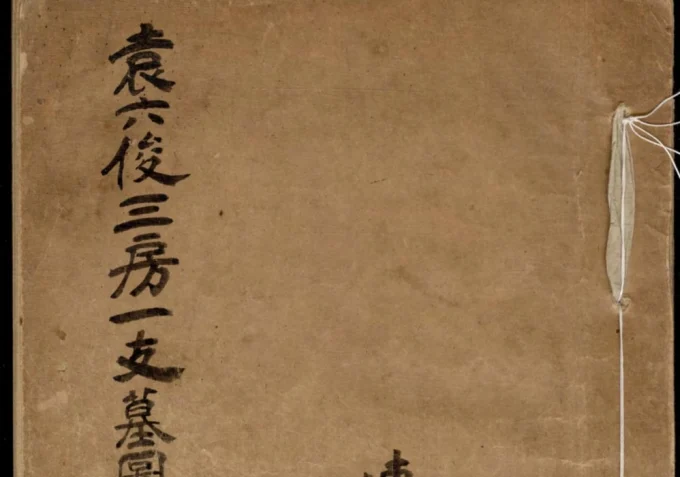 袁六俊三房一支墓圖